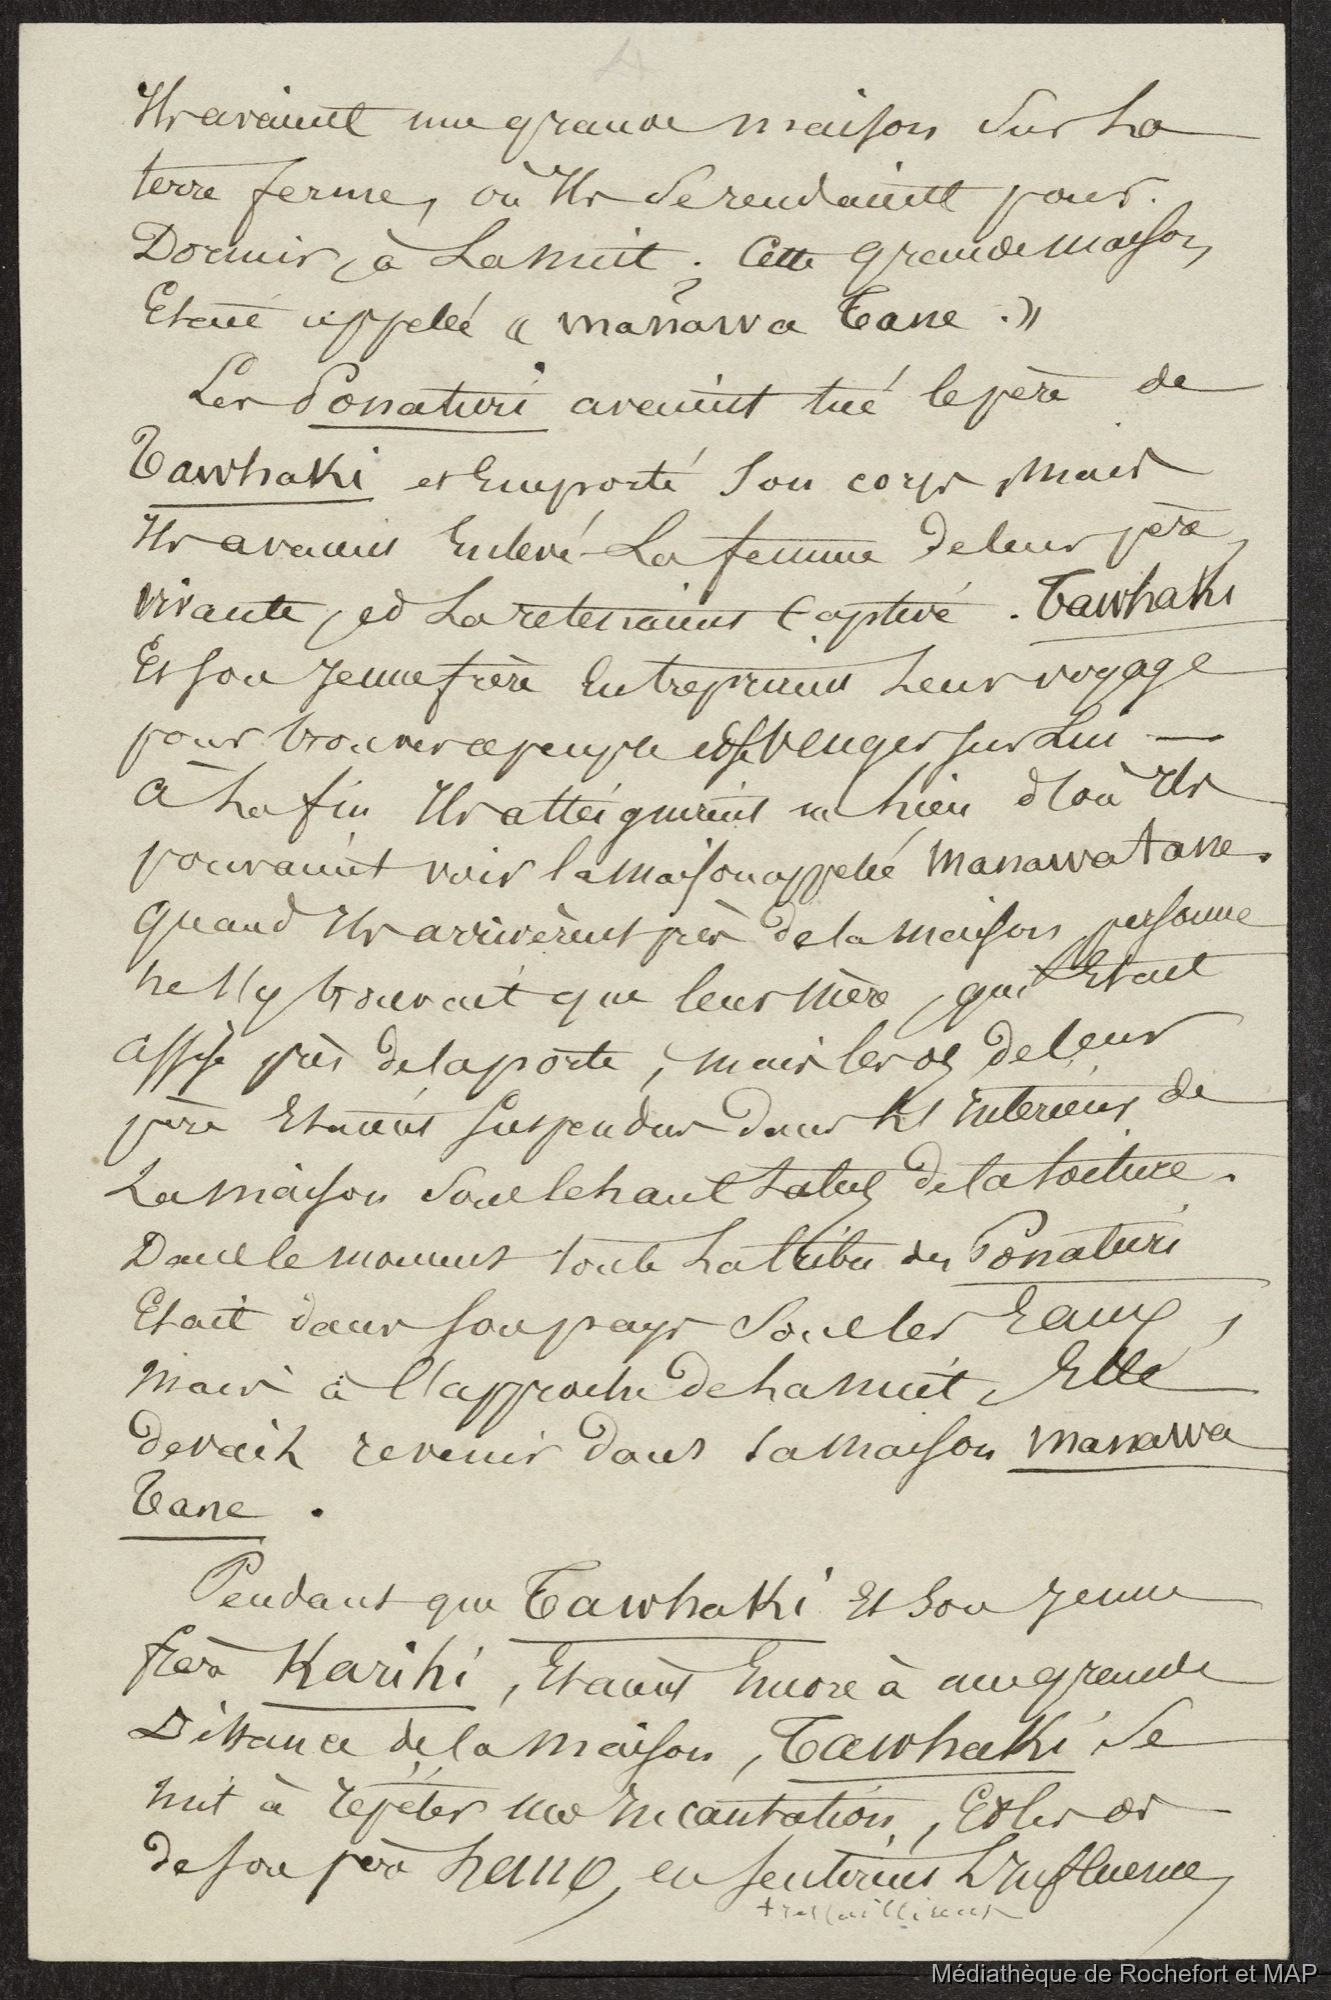 4
Ils avaient une grande maison sur la
terre ferme, où ils se rendaient pour
Dormir, à la nuit. Cette grande maison,
Etait appelée « manawa Tane. »
Les Ponaturi avaient tué le père de
Tawhaki et Emporté son corps, mais
Ils avaient Enlevé La femme de leur père,
vivante, et La retenaient Captive. Tawhaki
Et son jeune frère Entreprirent Leur voyage
pour trouver ce peuple et se venger sur Lui —
à La fin Ils atteignirent un lieu d'où Ils
pouvaient voir la maison appelée Manawa tane.
quand Ils arrivèrent près de la maison, personne
ne s'y trouvait que leur mère, qui Etait
assise près de la porte, mais les os de leur
père Etaient suspendus dans l'intérieur de
La maison sous le haut talus de la toiture.
Dans le moment toute La tribu des Ponaturi
Etait dans son pays sous les Eaux,
mais à l'approche de La nuit, Elle
devait revenir dans sa maison manawa
Tane.
Pendant que Tawhaki Et son jeune
frère Karihi, Etaient Encore à une grande
Distance de la maison, Tawhaki se
mit à répéter une Incantation, Et les os
de son père hema, en sentirent L'influence,
tressaillirent
Médiathèque de Rochefort et MAP